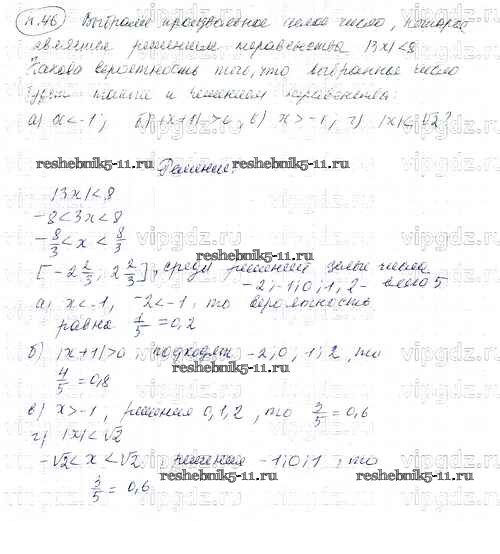 п.46 Выбрали произвольное целое число, которое
является решением неравенства |3x|<8
Какова вероятность того, что выбранное число
будет также и решением неравенства:
а) x<-1; б) |x+1|>0; в) x>-1; г) |x|<√2?
reshebnik5-11.ru
Решение:
reshebnik5-11.ru
|3x|<8
-8<3x<8
-8/3<x<8/3
[-2 2/3; 2 2/3], среди решений целые числа
-2;-1;0;1;2- всего 5
а) x<-1, -2<-1, то вероятность
равна 1/5=0,2
б) |x+1|>0 подходят -2;0;1;2, то
4/5=0,8
reshebnik5-11.ru
в) x>-1, решения 0,1,2, то 3/5=0,6
г) |x|<√2
-√2<x<√2, решения -1;0;1, то
3/5=0,6
reshebnik5-11.ru
vipgdz.ru